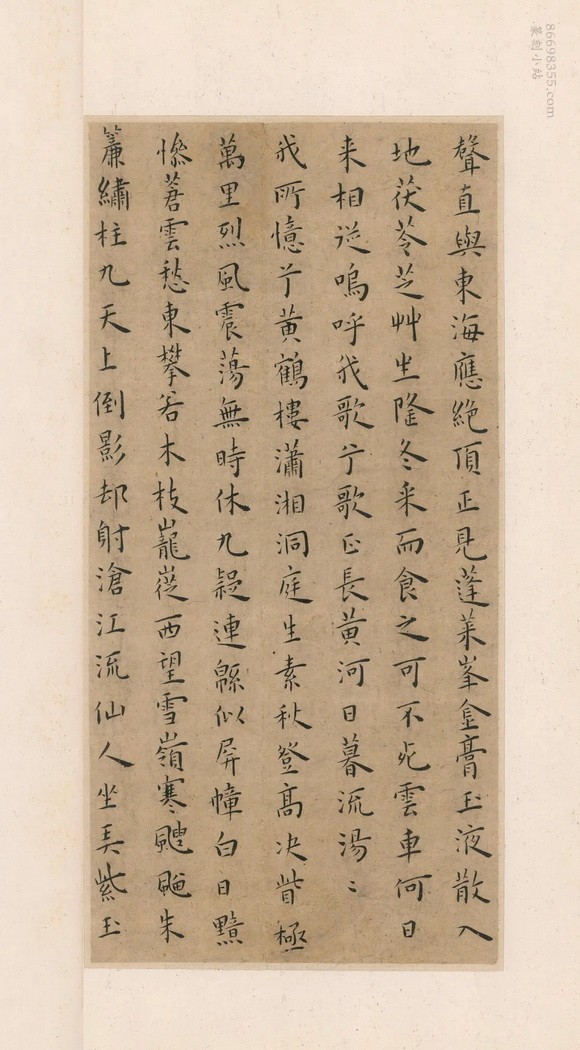 聲直與東海應絕頂正見蓬萊峯金膏玉液散入
地茯苓芝艸生隆冬采而食之可不死雲車何日
来相従嗚呼我歌兮歌正長黃河日暮流湯〻
我所憶兮黃鶴樓瀟湘洞庭生素秋登高決眥極
萬里烈風震蕩無時休九疑連緜似屏幛白日黯
慘蒼雲愁東攀若木枝巃嵸西望雪嶺寒颼飀朱
簾繡柱九天上倒影却射滄江流仙人坐弄紫玉
86698355.com
篆刻小站